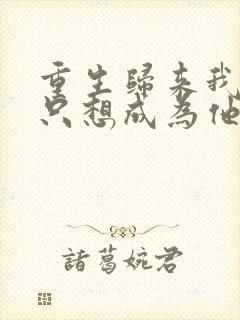 重生歸来我
只想成為他
諸葛婉君